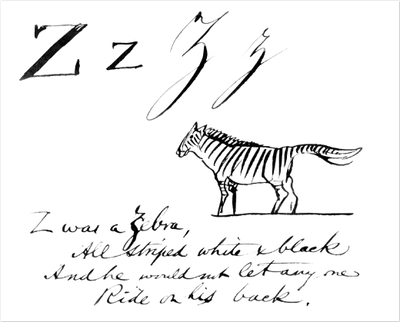 Z z Z z
Z was a Zebra,
All striped white & black
And he would not let any one
Ride on his back.